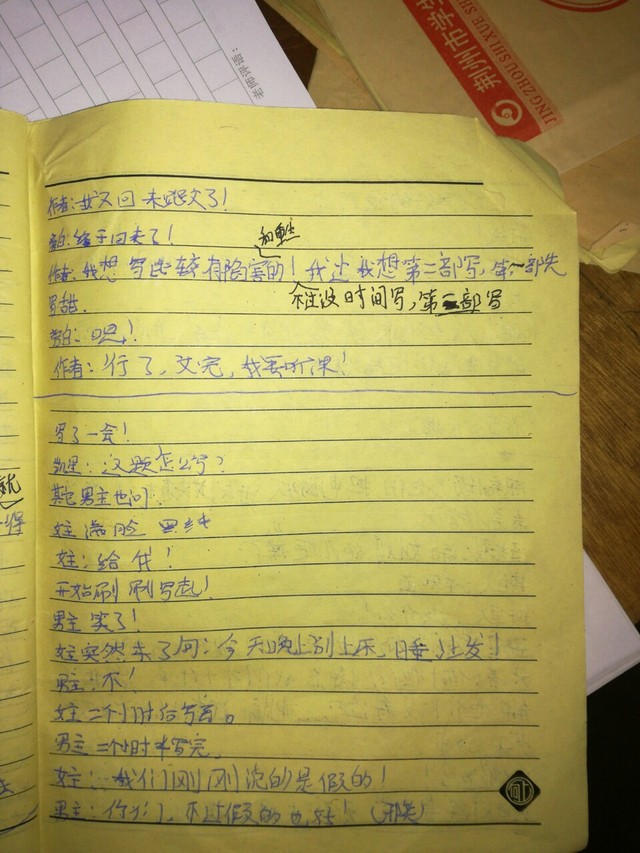 老师评语:
荆州市学
JINGZHOU SHI XUE SH
作者:我又回来跟文了!
旁白:终于回来了!
和重生
作者:我想写些较有陷害的!我过我想第二部写,第一部先
写甜.
不过没时间写,第二部写
旁白:嗯!
作者:行了,文完,我要听课!
写了一会!
凯里:这题怎么写?
其它男主也问.
女主满脸黑线
女主:给我!
开始刷刷写起!
男主笑了!
女主突然来了句:今天晚上别上床,睡沙发!
男主:不!
女主二个小时后写完。
男主二个小时半写完.
女主:我们刚刚说的是假的!
男主:你们,不过假的也好!
向上